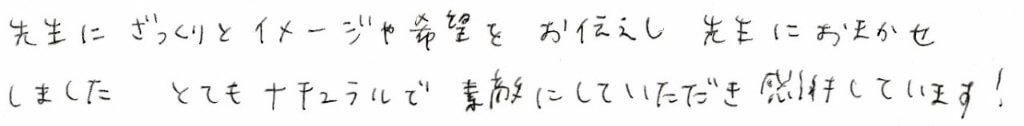 先生に ざっくりと イメージや希望を お伝えし 先生におまかせ
しました とてもナチュラルで 素敵にしていただき感謝しています!